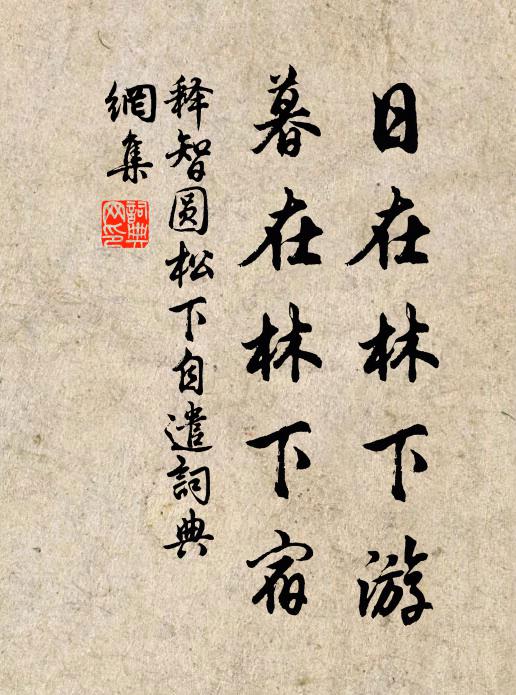 日在林下游
暮在林下宿
释智圆松下自遣詞典
網集
詞典
网印